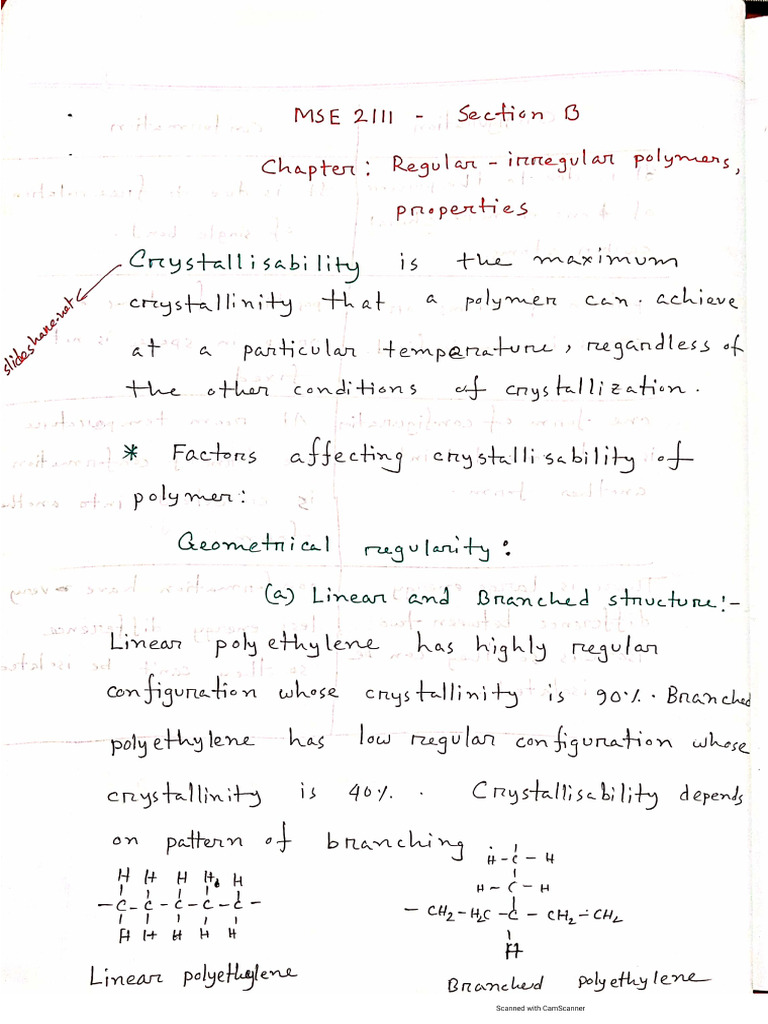 MSE 2111 - Section B
Chapter: Regular - irregular polymers,
properties
Crystallisability is the maximum
slideshare.net
crystallinity that a polymer can achieve
at a particular temperature, regardless of
the other conditions of crystallization.
* Factors affecting crystallisability of
polymer:
Geometrical regularity:
(a) Linear and Branched structure:-
Linear polyethylene has highly regular
configuration whose crystallinity is 90%. Branched
polyethylene has low regular configuration whose
crystallinity is 40%. Crystallisability depends
on pattern of branching
H H H H H
- C - C - C - C - C -
H H H H H
Linear polyethylene
H - C - H
H - C - H
- CH2 - H2C - C - CH2 - CH2
H
Branched polyethylene
Scanned with CamScanner